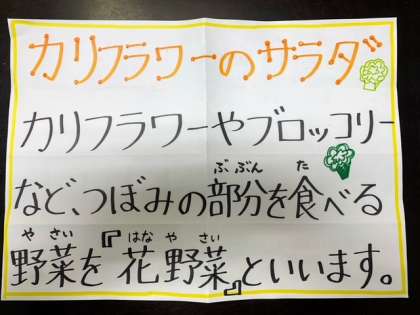 カリフラワーのサラダ
カリフラワーやブロッコリー
ぶ ぶん た
など、つぼみの部分を食べる
や さい はな や さい
野菜を『花野菜』といいます。